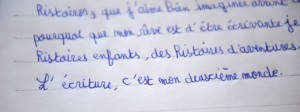 Histoires, que j'aime bien imaginée avant d
pourquoi que mon rêve est d'être écrivante je
Histoires enfants, des Histoires d'aventures.
L'écriture, c'est mon deuxcième monde.